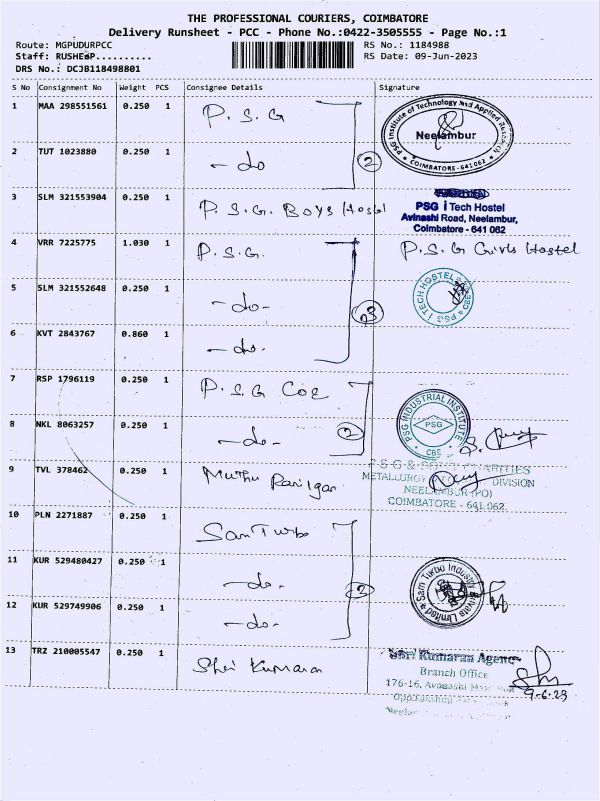 THE PROFESSIONAL COURIERS, COIMBATORE
Delivery Runsheet - PCC - Phone No.:0422-3505555 - Page No.:1
Route: MGPUDURPCC RS No.: 1184988
Staff: RUSHEØP.......... RS Date: 09-Jun-2023
DRS No.: DCJB118498801
S No Consignment No Weight PCS Consignee Details Signature
1 MAA 298551561 0.250 1 P. S. G
PSG Institute of Technology And Applied Research
Neelambur
COIMBATORE-641062
2 TUT 1023880 0.250 1 - do 2
3 SLM 321553904 0.250 1 P. S. G. Boys Hostel
PSG i Tech Hostel
Avinashi Road, Neelambur,
Coimbatore - 641 062
4 VRR 7225775 1.030 1 P. S. G. P. S. G Girls Hostel
5 SLM 321552648 0.250 1 - do - 3
PSG i TECH HOSTELS
6 KVT 2843767 0.860 1 - do -
7 RSP 1796119 0.250 1 P. S. G COE
PSG INDUSTRIAL INSTITUTE
PSG
CBE
8 NKL 8063257 0.250 1 - do - 2
9 TVL 378462 0.250 1 Muthu
P S G & SONS' CHARITIES
METALLURGY DIVISION
NEELAMBUR (PO)
COIMBATORE - 641 062
10 PLN 2271887 0.250 1 Sam Turbo
11 KUR 529480427 0.250 1 - do - 2
Sam Turbo Industry Private Limited
12 KUR 529749906 0.250 1 - do -
13 TRZ 210005547 0.250 1 Shri Kumaran
Shri Kumaran Agency
Branch Office
176-16, Avanashi
9-6-23